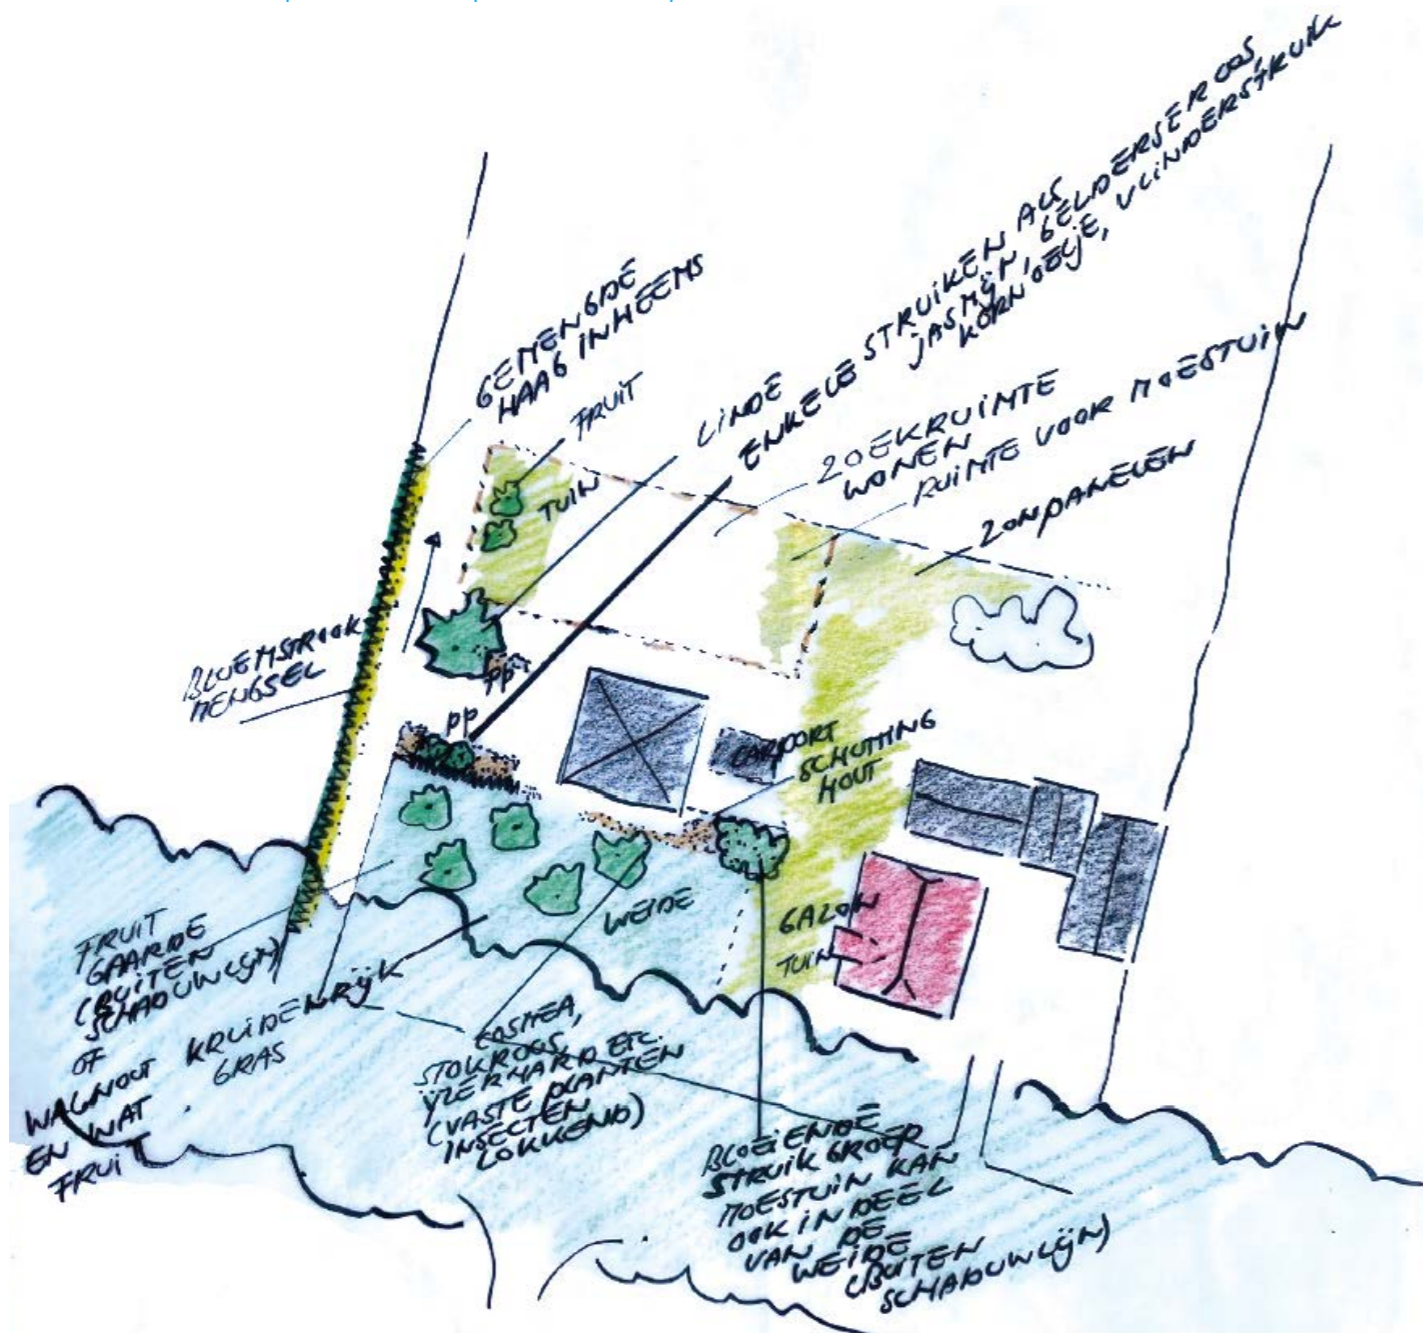 GEMENGDE
HAAG INHEEMS
FRUIT
LINDE
ENKELE STRUIKEN ALS
JASMIJN, GELDERSE ROOS,
KORNOELJE, VLINDERSTRUIK
ZOEKRUIMTE
WONEN
RUIMTE VOOR MOESTUIN
ZONPANELEN
TUIN
BLOEMSTROOK
MENGSEL
PP
PP
CARPORT
SCHUTTING
HOUT
WEIDE
GAZON
TUIN
FRUIT
GAARDE
(BUITEN
SCHADUWLIJN)
OF
WALNOOT
EN WAT
FRUIT
KRUIDENRIJK
GRAS
COSMEA,
STOKROOS,
IJZERHARD ETC.
(VASTE PLANTEN
INSECTEN
LOKKEND)
BLOEIENDE
STRUIKGROEP
MOESTUIN KAN
OOK IN DEEL
VAN DE
WEIDE
(BUITEN
SCHADUWLIJN)